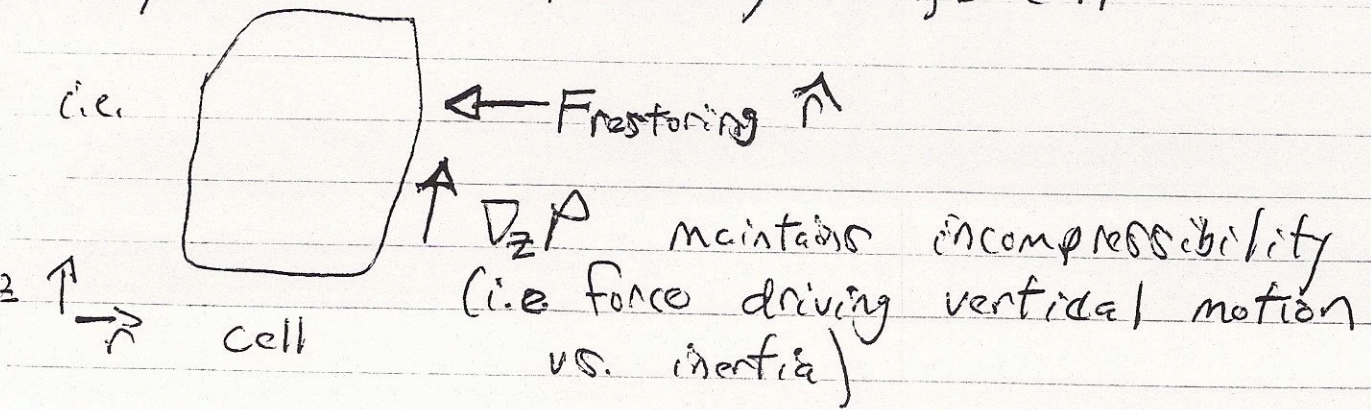 i.e.
← Frestoring r̂
↑ ∇zP maintains incompressibility
z ↑ (i.e. force driving vertical motion
→ r̂ cell vs. inertia)